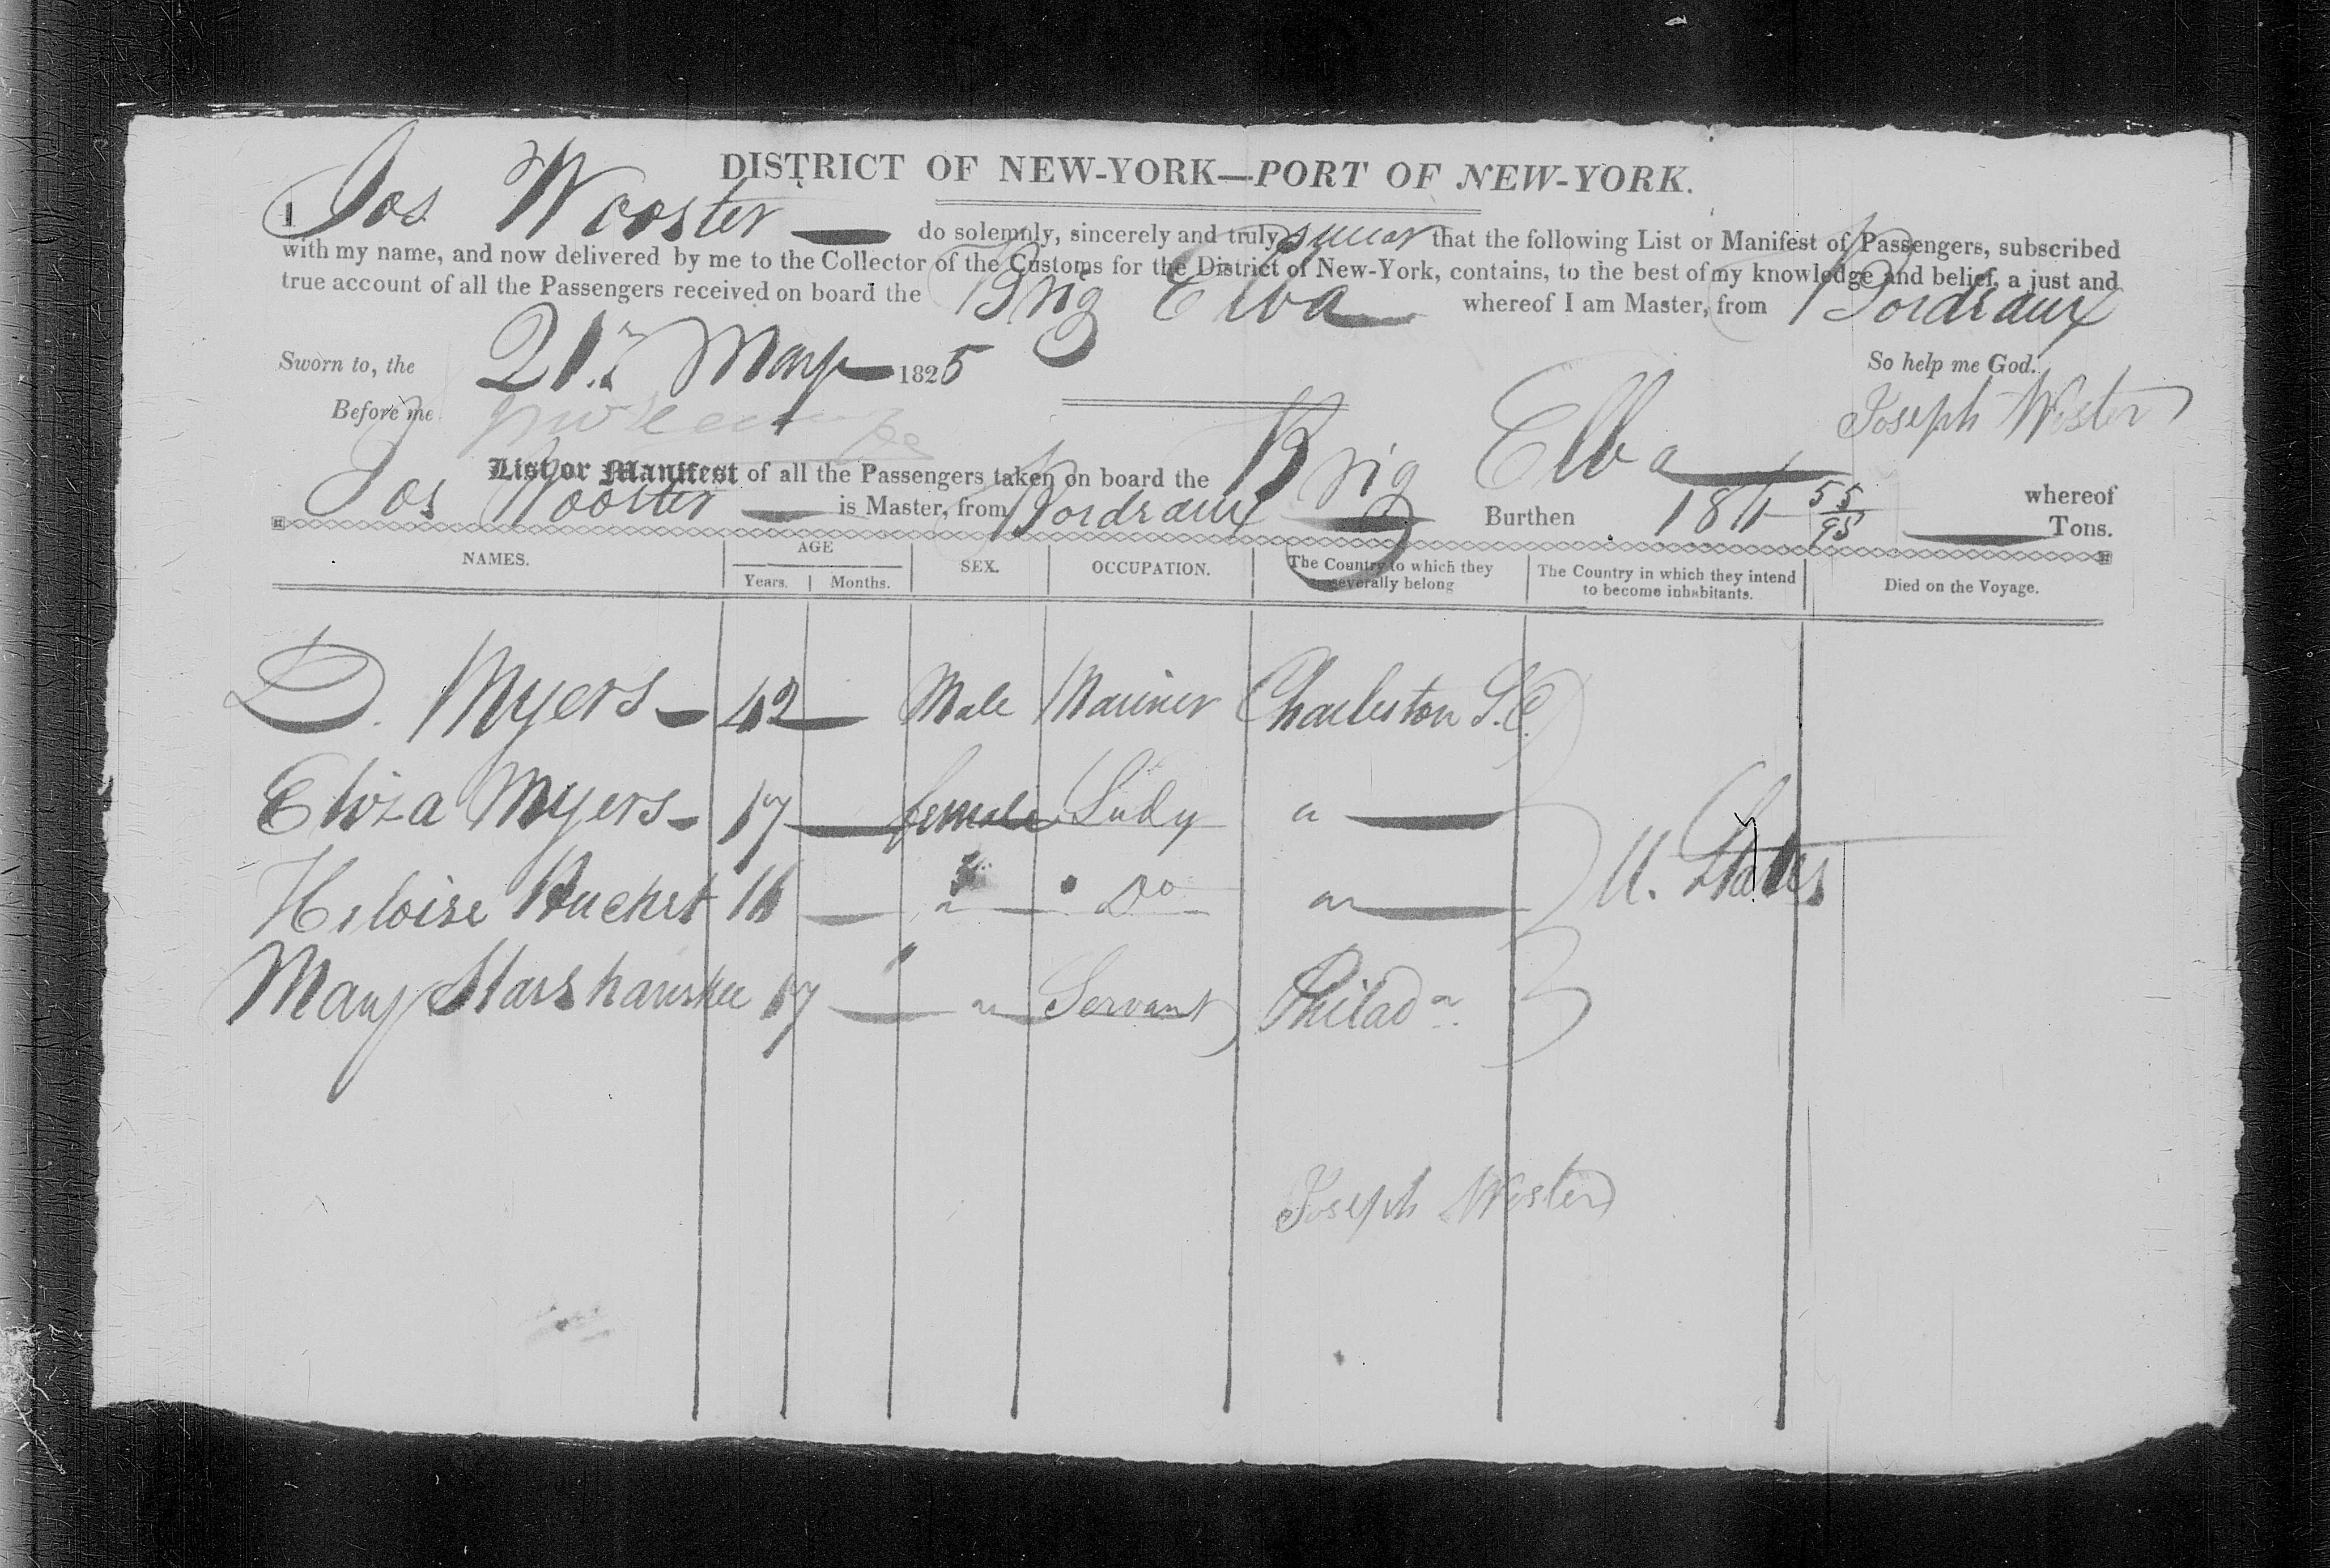 DISTRICT OF NEW-YORK—PORT OF NEW-YORK.
I Jos Wooster — do solemnly, sincerely and truly swear that the following List or Manifest of Passengers, subscribed
with my name, and now delivered by me to the Collector of the Customs for the District of New-York, contains, to the best of my knowledge and belief, a just and
true account of all the Passengers received on board the Brig Elba whereof I am Master, from Bordeaux
Sworn to, the 21st May 1825 So help me God.
Before me Joseph Wooster
List or Manifest of all the Passengers taken on board the Brig Elba whereof
Jos Wooster — is Master, from Bordeaux — Burthen 55/95 — Tons.
NAMES. AGE SEX. OCCUPATION. The Country to which they severally belong The Country in which they intend to become inhabitants. Died on the Voyage.
Years. Months.
D. Myers — 42 — Male Mariner Charleston S.C.
Eliza Myers — 17 — female Lady " —
Heloise 16 — " — Do " —
U. States
Mary 17 — " — Servant Philada
Joseph Wooster